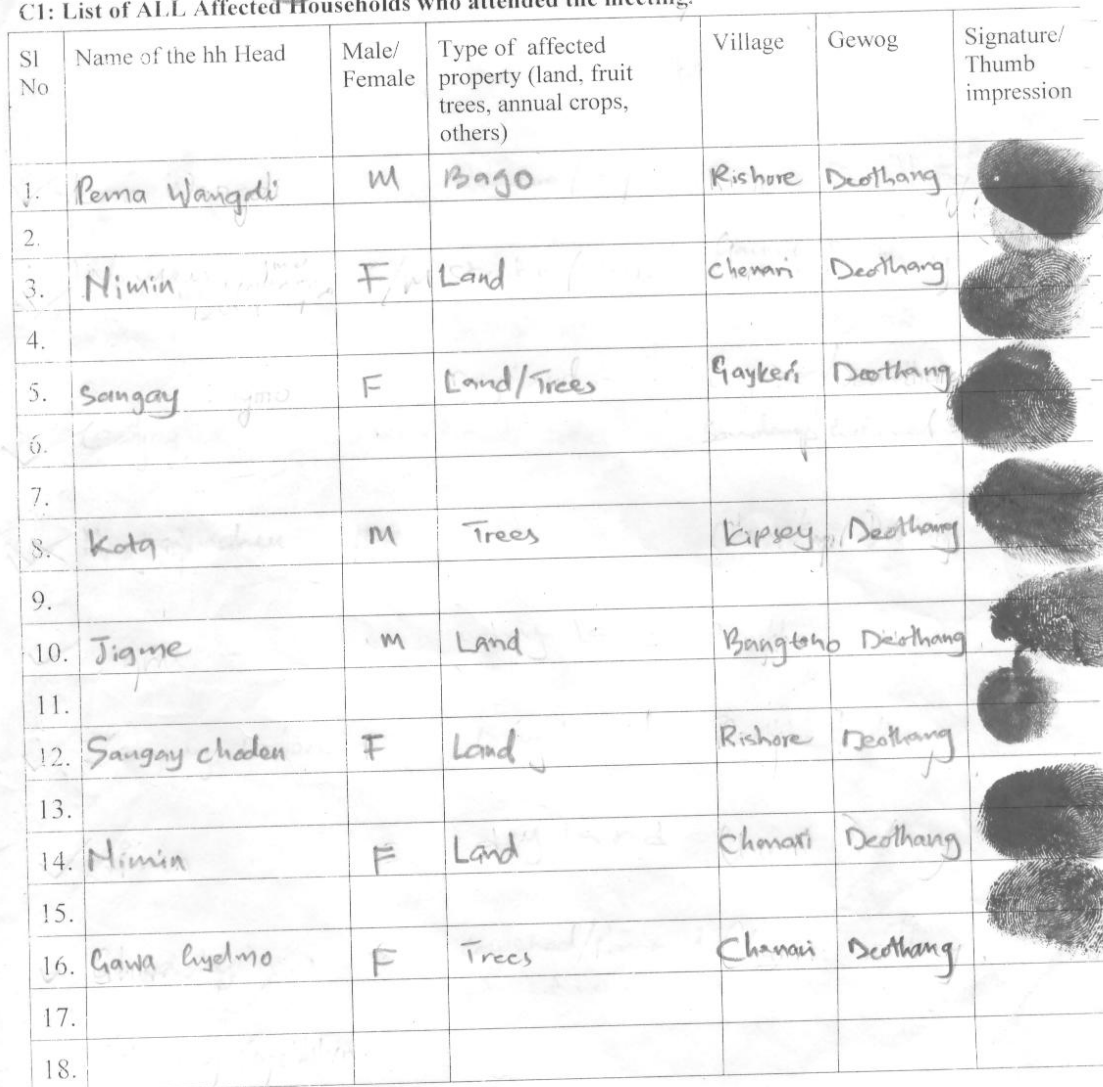 C1: List of ALL Affected Households who attended the meeting.
Sl No | Name of the hh Head | Male/ Female | Type of affected property (land, fruit trees, annual crops, others) | Village | Gewog | Signature/ Thumb impression
1. Pema Wangdi M Bago Rishore Deothang
2.
3. Nimin F Land Chenari Deothang
4.
5. Sangay F Land/Trees Gaykeri Deothang
6.
7.
8. Kota M Trees Kipsey Deothang
9.
10. Jigme M Land Bangtsho Deothang
11.
12. Sangay choden F Land Rishore Deothang
13.
14. Nimin F Land Chenari Deothang
15.
16. Gawa Gyelmo F Trees Chenari Deothang
17.
18.